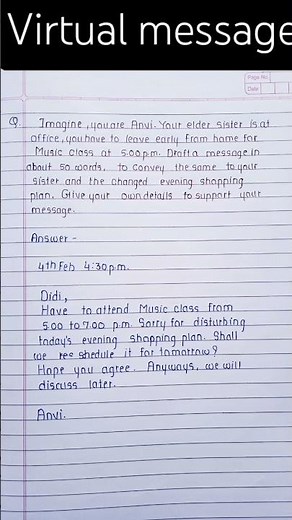 Virtual message
Page No.
Date
Q. Imagine, you are Anvi. Your elder sister is at
office, you have to leave early from home for
Music class at 5:00 p.m. Draft a message in
about 50 words, to convey the same to your
sister and the changed evening shopping
plan. Give your own details to support your
message.
Answer -
4th Feb 4:30 p.m.
Didi,
Have to attend Music class from
5:00 to 7:00 p.m. Sorry for disturbing
today's evening shopping plan. Shall
we res shedule it for tomorrow?
Hope you agree. Anyways, we will
discuss later.
Anvi.